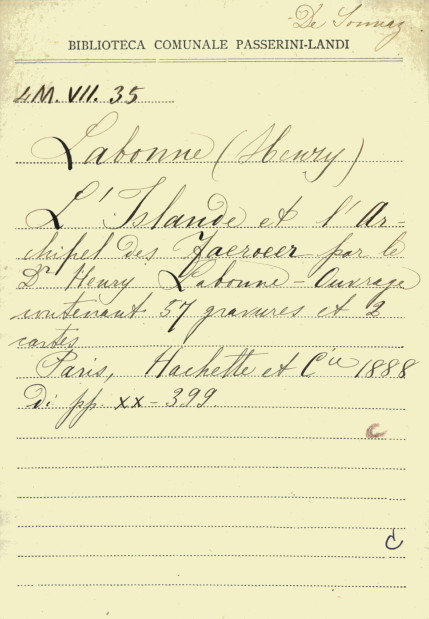 De Sonnaz
BIBLIOTECA COMUNALE PASSERINI-LANDI
4M. VII. 35
Labonne (Henry)
L'Islande et l'Ar-
chipel des Faeroeer par le
Dr Henry Labonne - Ouvrage
contenant 57 gravures et 2
cartes
Paris, Hachette et Cie 1888
di pp. xx - 399.
C
C